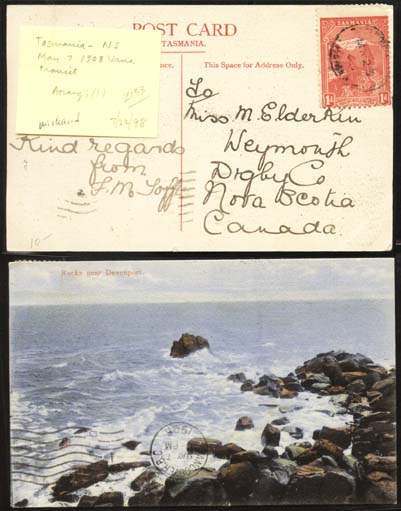 POST CARD
TASMANIA.
This Space for Address Only.
TASMANIA
1d 1d
Tasmania - NS
May 7 1908 Vanc
transit
7/22/98
To
Miss M. Elderkin
Weymouth
Digby Co
Nova Scotia
Canada.
Kind regards
from
10-
Rocks near Devonport.
MAY 7
PM
1908